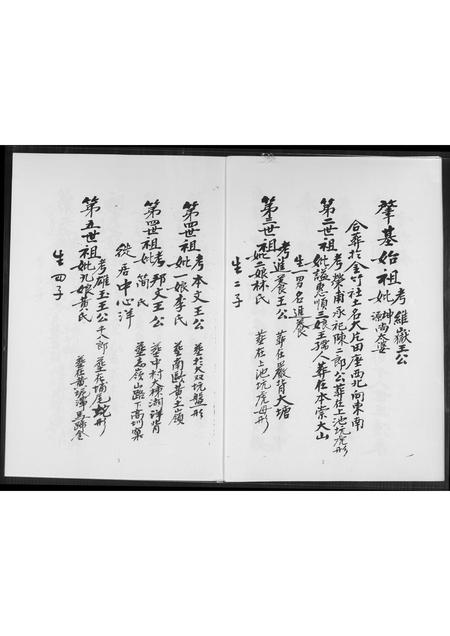 肇基始祖考維嶽王公
妣坤尚太婆
合葬於金竹社土名大片田座西北向東南
第二世祖考榮甫承祀陳二郎公葬在上池坑虎形
妣謚惠順三娘王孺人葬在本崇大山
生一男名進養
第三世祖考進養王公 葬在嚴背大塘
妣二娘林氏 葬在上池坑虎母形
生二子
第四世祖考本文王公 葬於大双坑盤形
妣一娘李氏 葬南歐黄土嶺
第四世祖考邦文王公 葬中村大棟湖洋背
妣簡氏 葬高嶺山路下高圳窠
徙居中心洋
第五世祖考雄玉王公千八郎 葬在埔尾蛇形
妣九娘黄氏 葬在黄坑潭馬蹄
生四子